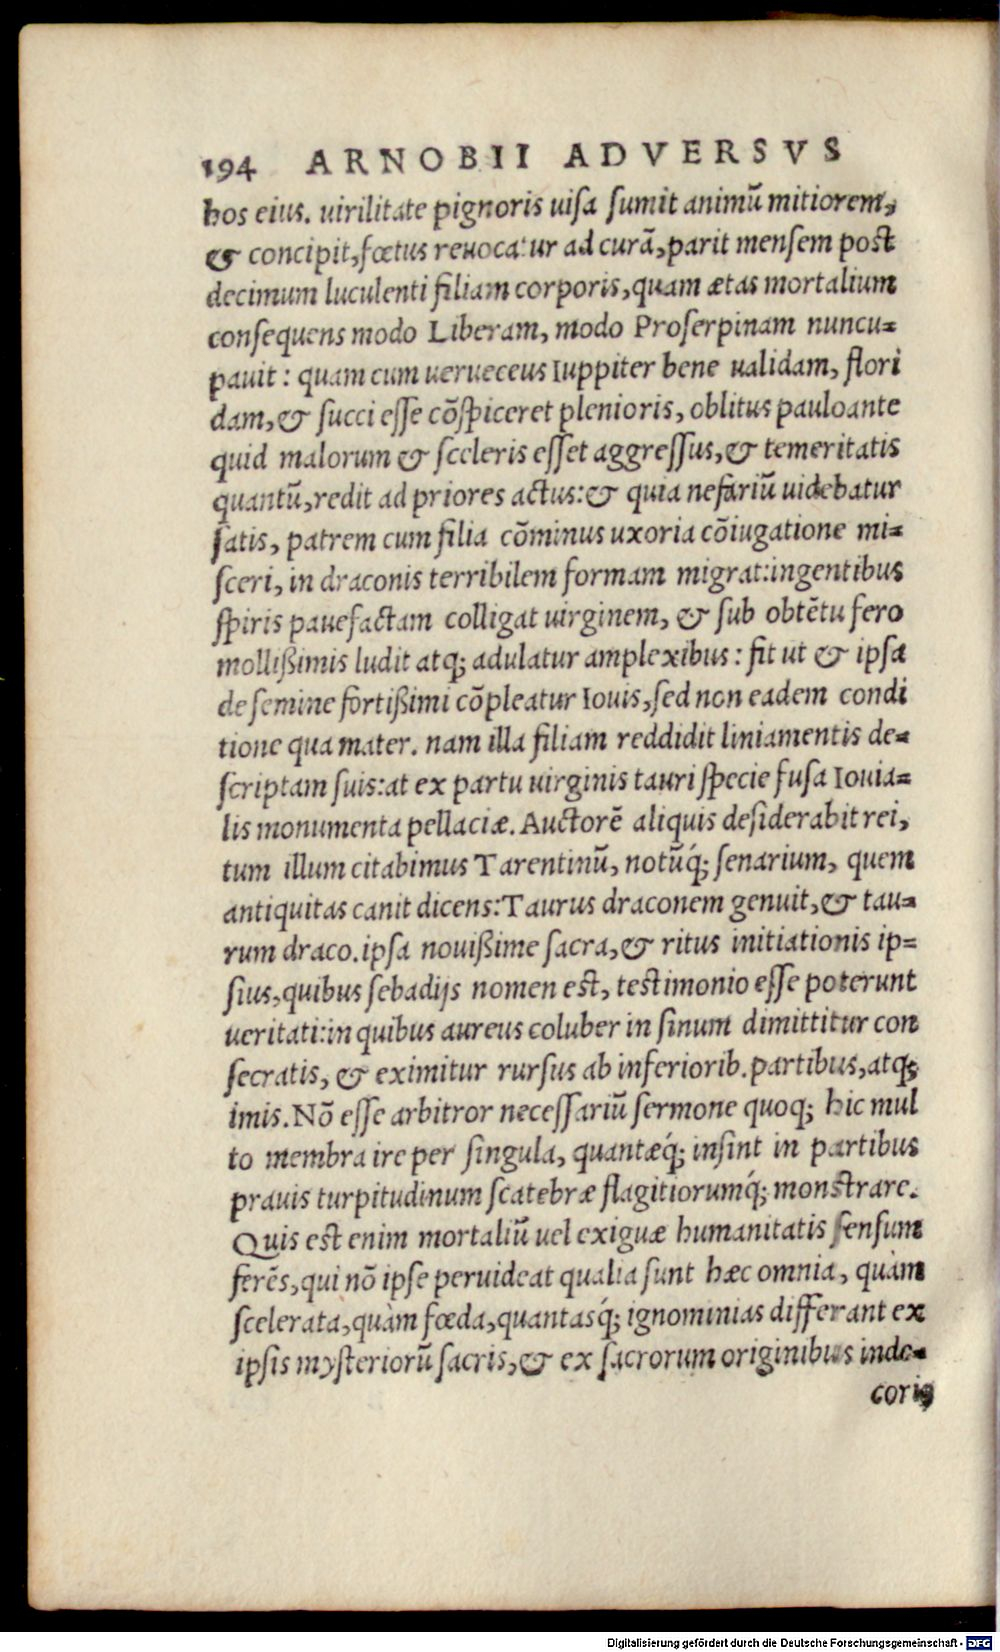 194 ARNOBII ADVERSVS
hos eius. uirilitate pignoris uisa sumit animũ mitiorem,
& concipit, fœtus reuocatur ad curã, parit mensem post
decimum luculenti filiam corporis, quam ætas mortalium
consequens modo Liberam, modo Proserpinam nuncu=
pauit : quam cum uerueceus Iuppiter bene ualidam, flori
dam, & succi esse cõspiceret plenioris, oblitus pauloante
quid malorum & sceleris esset aggressus, & temeritatis
quantũ, redit ad priores actus: & quia nefariũ uidebatur
satis, patrem cum filia cõminus uxoria cõiugatione mi=
sceri, in draconis terribilem formam migrat: ingentibus
spiris pauefactam colligat uirginem, & sub obtẽtu fero
mollißimis ludit atq; adulatur amplexibus : fit ut & ipsa
de semine fortißimi cõpleatur Iouis, sed non eadem condi
tione qua mater. nam illa filiam reddidit liniamentis de=
scriptam suis: at ex partu uirginis tauri specie fusa Iouia=
lis monumenta pellaciæ. Auctorẽ aliquis desiderabit rei,
tum illum citabimus Tarentinũ, notũq́; senarium, quem
antiquitas canit dicens: Taurus draconem genuit, & tau=
rum draco. ipsa nouißime sacra, & ritus initiationis ip=
sius, quibus sebadijs nomen est, testimonio esse poterunt
ueritati: in quibus aureus coluber in sinum dimittitur con
secratis, & eximitur rursus ab inferiorib. partibus, atq;
imis. Nõ esse arbitror necessariũ sermone quoq; hic mul
to membra ire per singula, quantæq́; insint in partibus
prauis turpitudinum scatebræ flagitiorumq́; monstrare.
Quis est enim mortaliũ uel exiguæ humanitatis sensum
ferẽs, qui nõ ipse peruideat qualia sunt hæc omnia, quàm
scelerata, quàm fœda, quantasq́; ignominias differant ex
ipsis mysteriorũ sacris, & ex sacrorum originibus inde=
coris
Digitalisierung gefördert durch die Deutsche Forschungsgemeinschaft - DFG